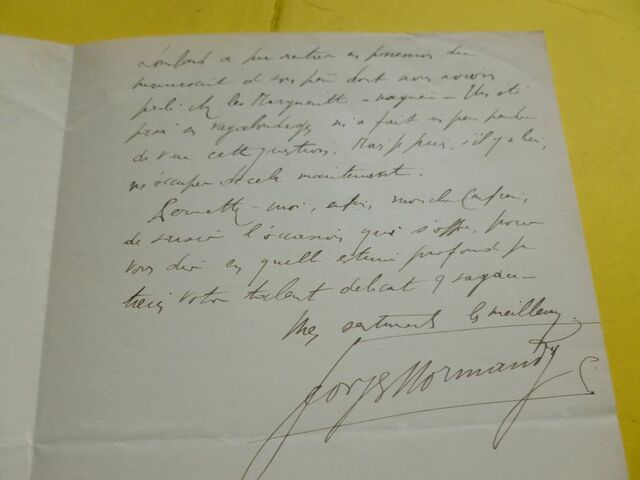 a pu rentrer en possession du
manuscrit de son père dont nous avions
parlé chez les Margueritte naguère - Un été
passé en vagabondages m'a fait un peu perdre
de vue cette question. Mais je puis, s'il y a lieu,
m'occuper de cela maintenant.
Permettez-moi, enfin, mon cher Confrère,
de saisir l'occasion qui s'offre, pour
vous dire en quelle estime profonde je
tiens votre talent délicat &
Mes sentiments les meilleurs.
Georges Normandy